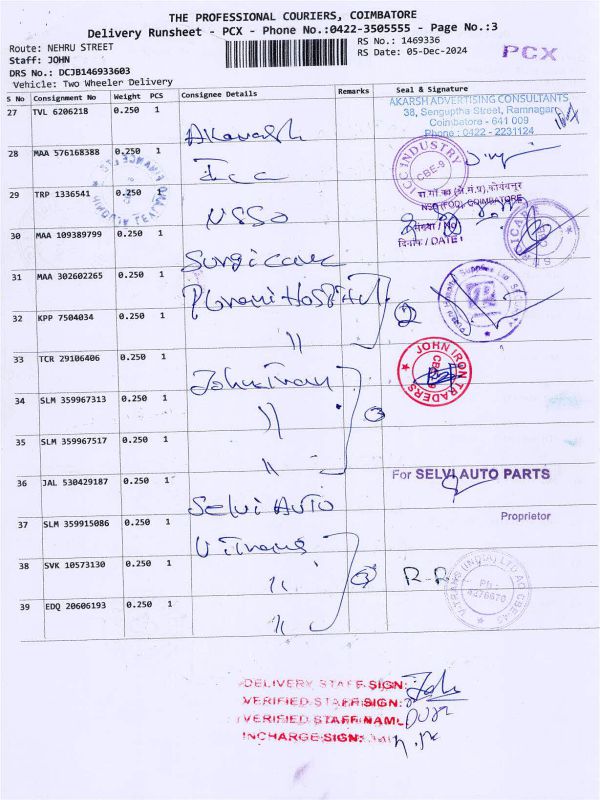 THE PROFESSIONAL COURIERS, COIMBATORE
Delivery Runsheet - PCX - Phone No.:0422-3505555 - Page No.:3
Route: NEHRU STREET
RS No.: 1469336
PCX
Staff: JOHN
RS Date: 05-Dec-2024
DRS No.: DCJB146933603
Vehicle: Two Wheeler Delivery
S No Consignment No Weight PCS Consignee Details Remarks Seal & Signature
27 TVL 6206218 0.250 1
AKARSH ADVERTISING CONSULTANTS
38, Senguptha Street, Ramnagar
Coimbatore - 641 009
Phone : 0422 - 2231124
28 MAA 576168388 0.250 1
ICC INDUSTRY
CBE-9
29 TRP 1336541 0.250 1 NSSO
NSO (FOD), COIMBATORE
संख्या / NO
दिनांक / DATE:
30 MAA 109389799 0.250 1
31 MAA 302602265 0.250 1
32 KPP 7504034 0.250 1 "
2
33 TCR 29106406 0.250 1
JOHN IRON TRADERS
34 SLM 359967313 0.250 1 "
3
35 SLM 359967517 0.250 1 "
36 JAL 530429187 0.250 1 Selvi AUTO
For SELVI AUTO PARTS
Proprietor
37 SLM 359915086 0.250 1 Vitrans
38 SVK 10573130 0.250 1 "
3
R-R
V-TRANS (INDIA) LTD
Ph :
39 EDQ 20606193 0.250 1 "
DELIVERY STAFF SIGN:
VERIFIED STAFF SIGN:
VERIFIED STAFF NAME
INCHARGE SIGN: